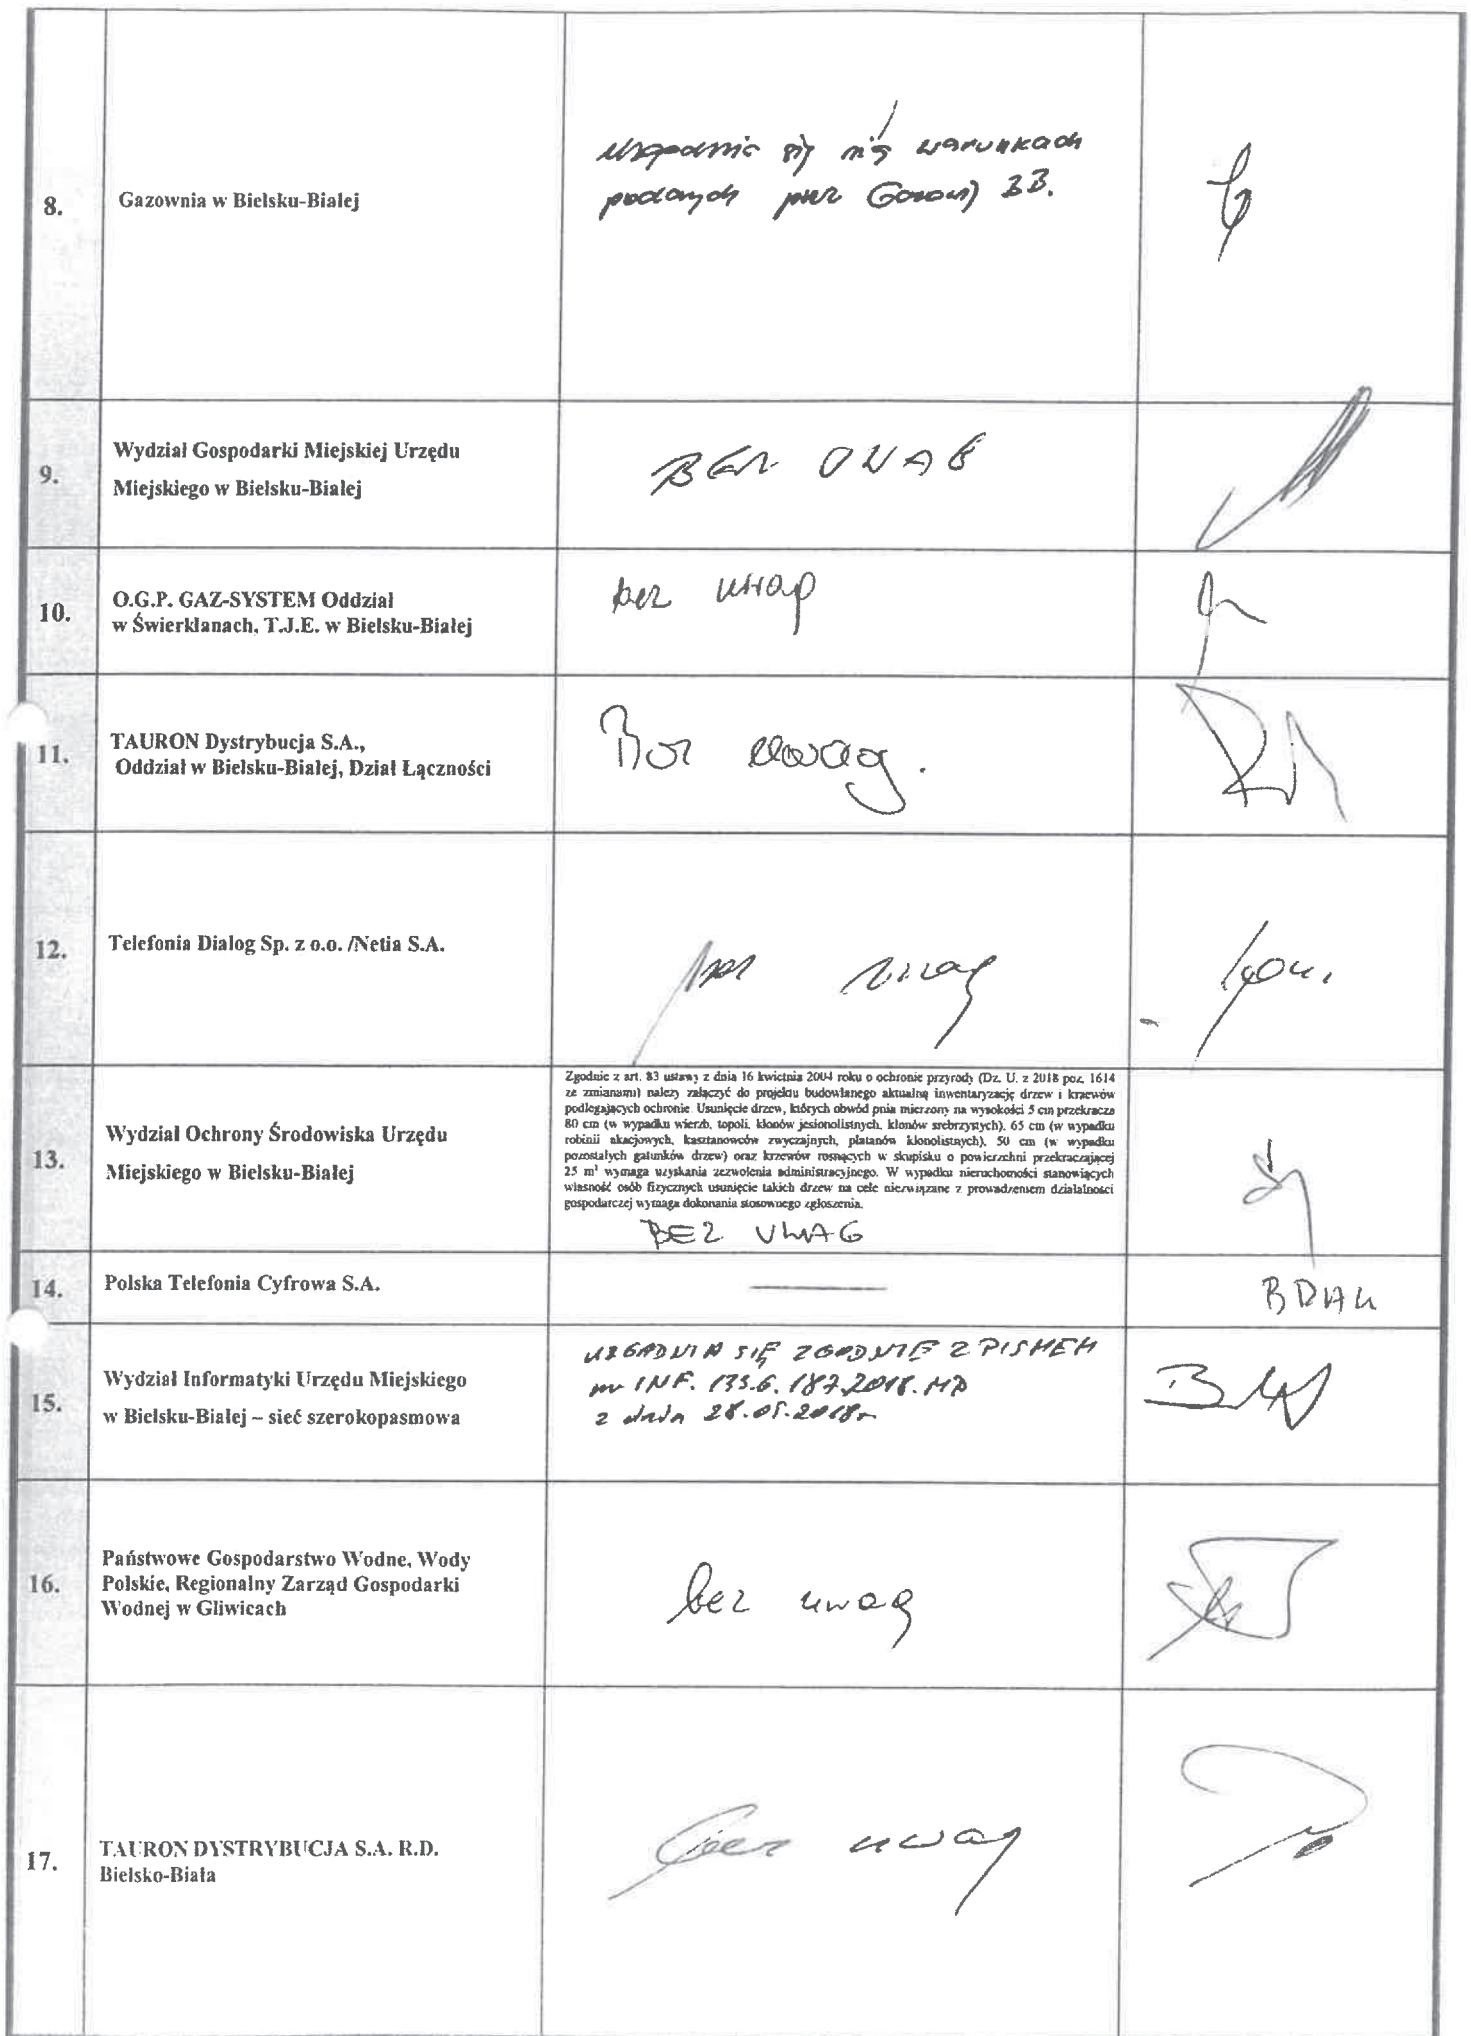 8.
Gazownia w Bielsku-Białej
Uzgadnia się na warunkach
podanych przez Gazown) BB.
9.
Wydział Gospodarki Miejskiej Urzędu
Miejskiego w Bielsku-Białej
BEZ UWAG
10.
O.G.P. GAZ-SYSTEM Oddział
w Świerklanach, T.J.E. w Bielsku-Białej
bez uwag
11.
TAURON Dystrybucja S.A.,
Oddział w Bielsku-Białej, Dział Łączności
Bez uwag.
12.
Telefonia Dialog Sp. z o.o. /Netia S.A.
bez uwag
13.
Wydział Ochrony Środowiska Urzędu
Miejskiego w Bielsku-Białej
Zgodnie z art. 83 ustawy z dnia 16 kwietnia 2004 roku o ochronie przyrody (Dz. U. z 2018 poz. 1614
ze zmianami) należy załączyć do projektu budowlanego aktualną inwentaryzację drzew i krzewów
podlegających ochronie. Usunięcie drzew, których obwód pnia mierzony na wysokości 5 cm przekracza
80 cm (w wypadku wierzb, topoli, klonów jesionolistnych, klonów srebrzystych), 65 cm (w wypadku
robinii akacjowych, kasztanowców zwyczajnych, platanów klonolistnych), 50 cm (w wypadku
pozostałych gatunków drzew) oraz krzewów rosnących w skupisku o powierzchni przekraczającej
25 m² wymaga uzyskania zezwolenia administracyjnego. W wypadku nieruchomości stanowiących
własność osób fizycznych usunięcie takich drzew na cele niezwiązane z prowadzeniem działalności
gospodarczej wymaga dokonania stosownego zgłoszenia.
BEZ UWAG
14.
Polska Telefonia Cyfrowa S.A.
15.
Wydział Informatyki Urzędu Miejskiego
w Bielsku-Białej – sieć szerokopasmowa
UZGADNIA SIĘ ZGODNIE Z PISMEM
nr INF. 133.6.187.2018.MD
z dnia 28.05.2018r
16.
Państwowe Gospodarstwo Wodne, Wody
Polskie, Regionalny Zarząd Gospodarki
Wodnej w Gliwicach
bez uwag
17.
TAURON DYSTRYBUCJA S.A. R.D.
Bielsko-Biała
bez uwag